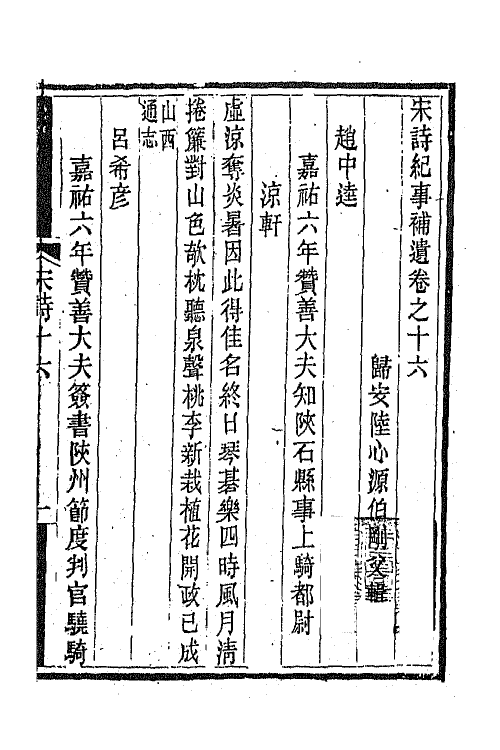 宋詩紀事補遺卷之十六
歸安陸心源伯剛父輯
趙中逵
嘉祐六年贊善大夫知陝石縣事上騎都尉
涼軒
虛涼奪炎暑因此得佳名終日琴碁樂四時風月清
捲簾對山色欹枕聽泉聲桃李新栽植花開政已成
山西
通志
呂希彥
嘉祐六年贊善大夫簽書陝州節度判官驍騎
宋詩十六
一